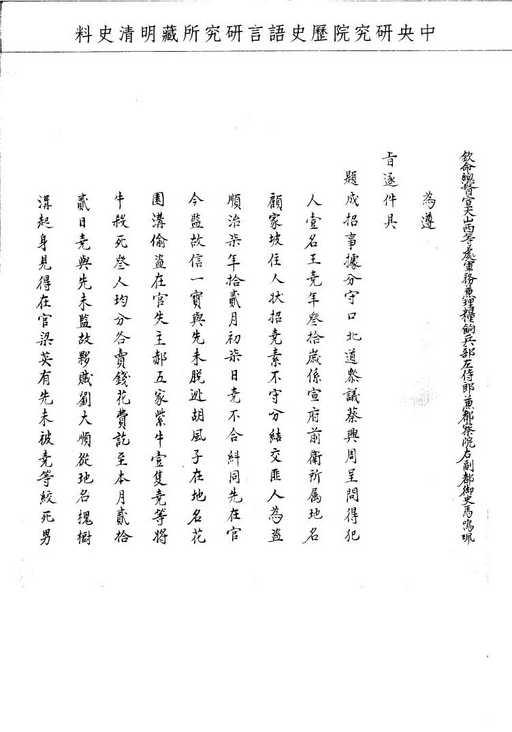 中央研究院歷史語言研究所藏明清史料
欽命總督宣大山西等處軍務兼理糧餉兵部左侍郎兼都察院右副都御史馬鳴珮
為遵
旨逐件具
題成招事據分守口北道叅議蔡興周呈問得犯
人壹名王竟年叁拾歲係宣府前衛所属地名
顧家坡住人狀招竟素不守分結交匪人為盜
順治柒年拾貳月初柒日竟不合糾同先在官
今監故信一寶與先未脫逃胡風子在地名花
園溝偷盜在官失主郝五家紫牛壹隻竟等將
牛殺死叁人均分各賣錢花費訖至本月貳拾
貳日竟與先未監故夥賊劉大順從地名槐樹
溝起身見得在官梁英有先未被竟等絞死男